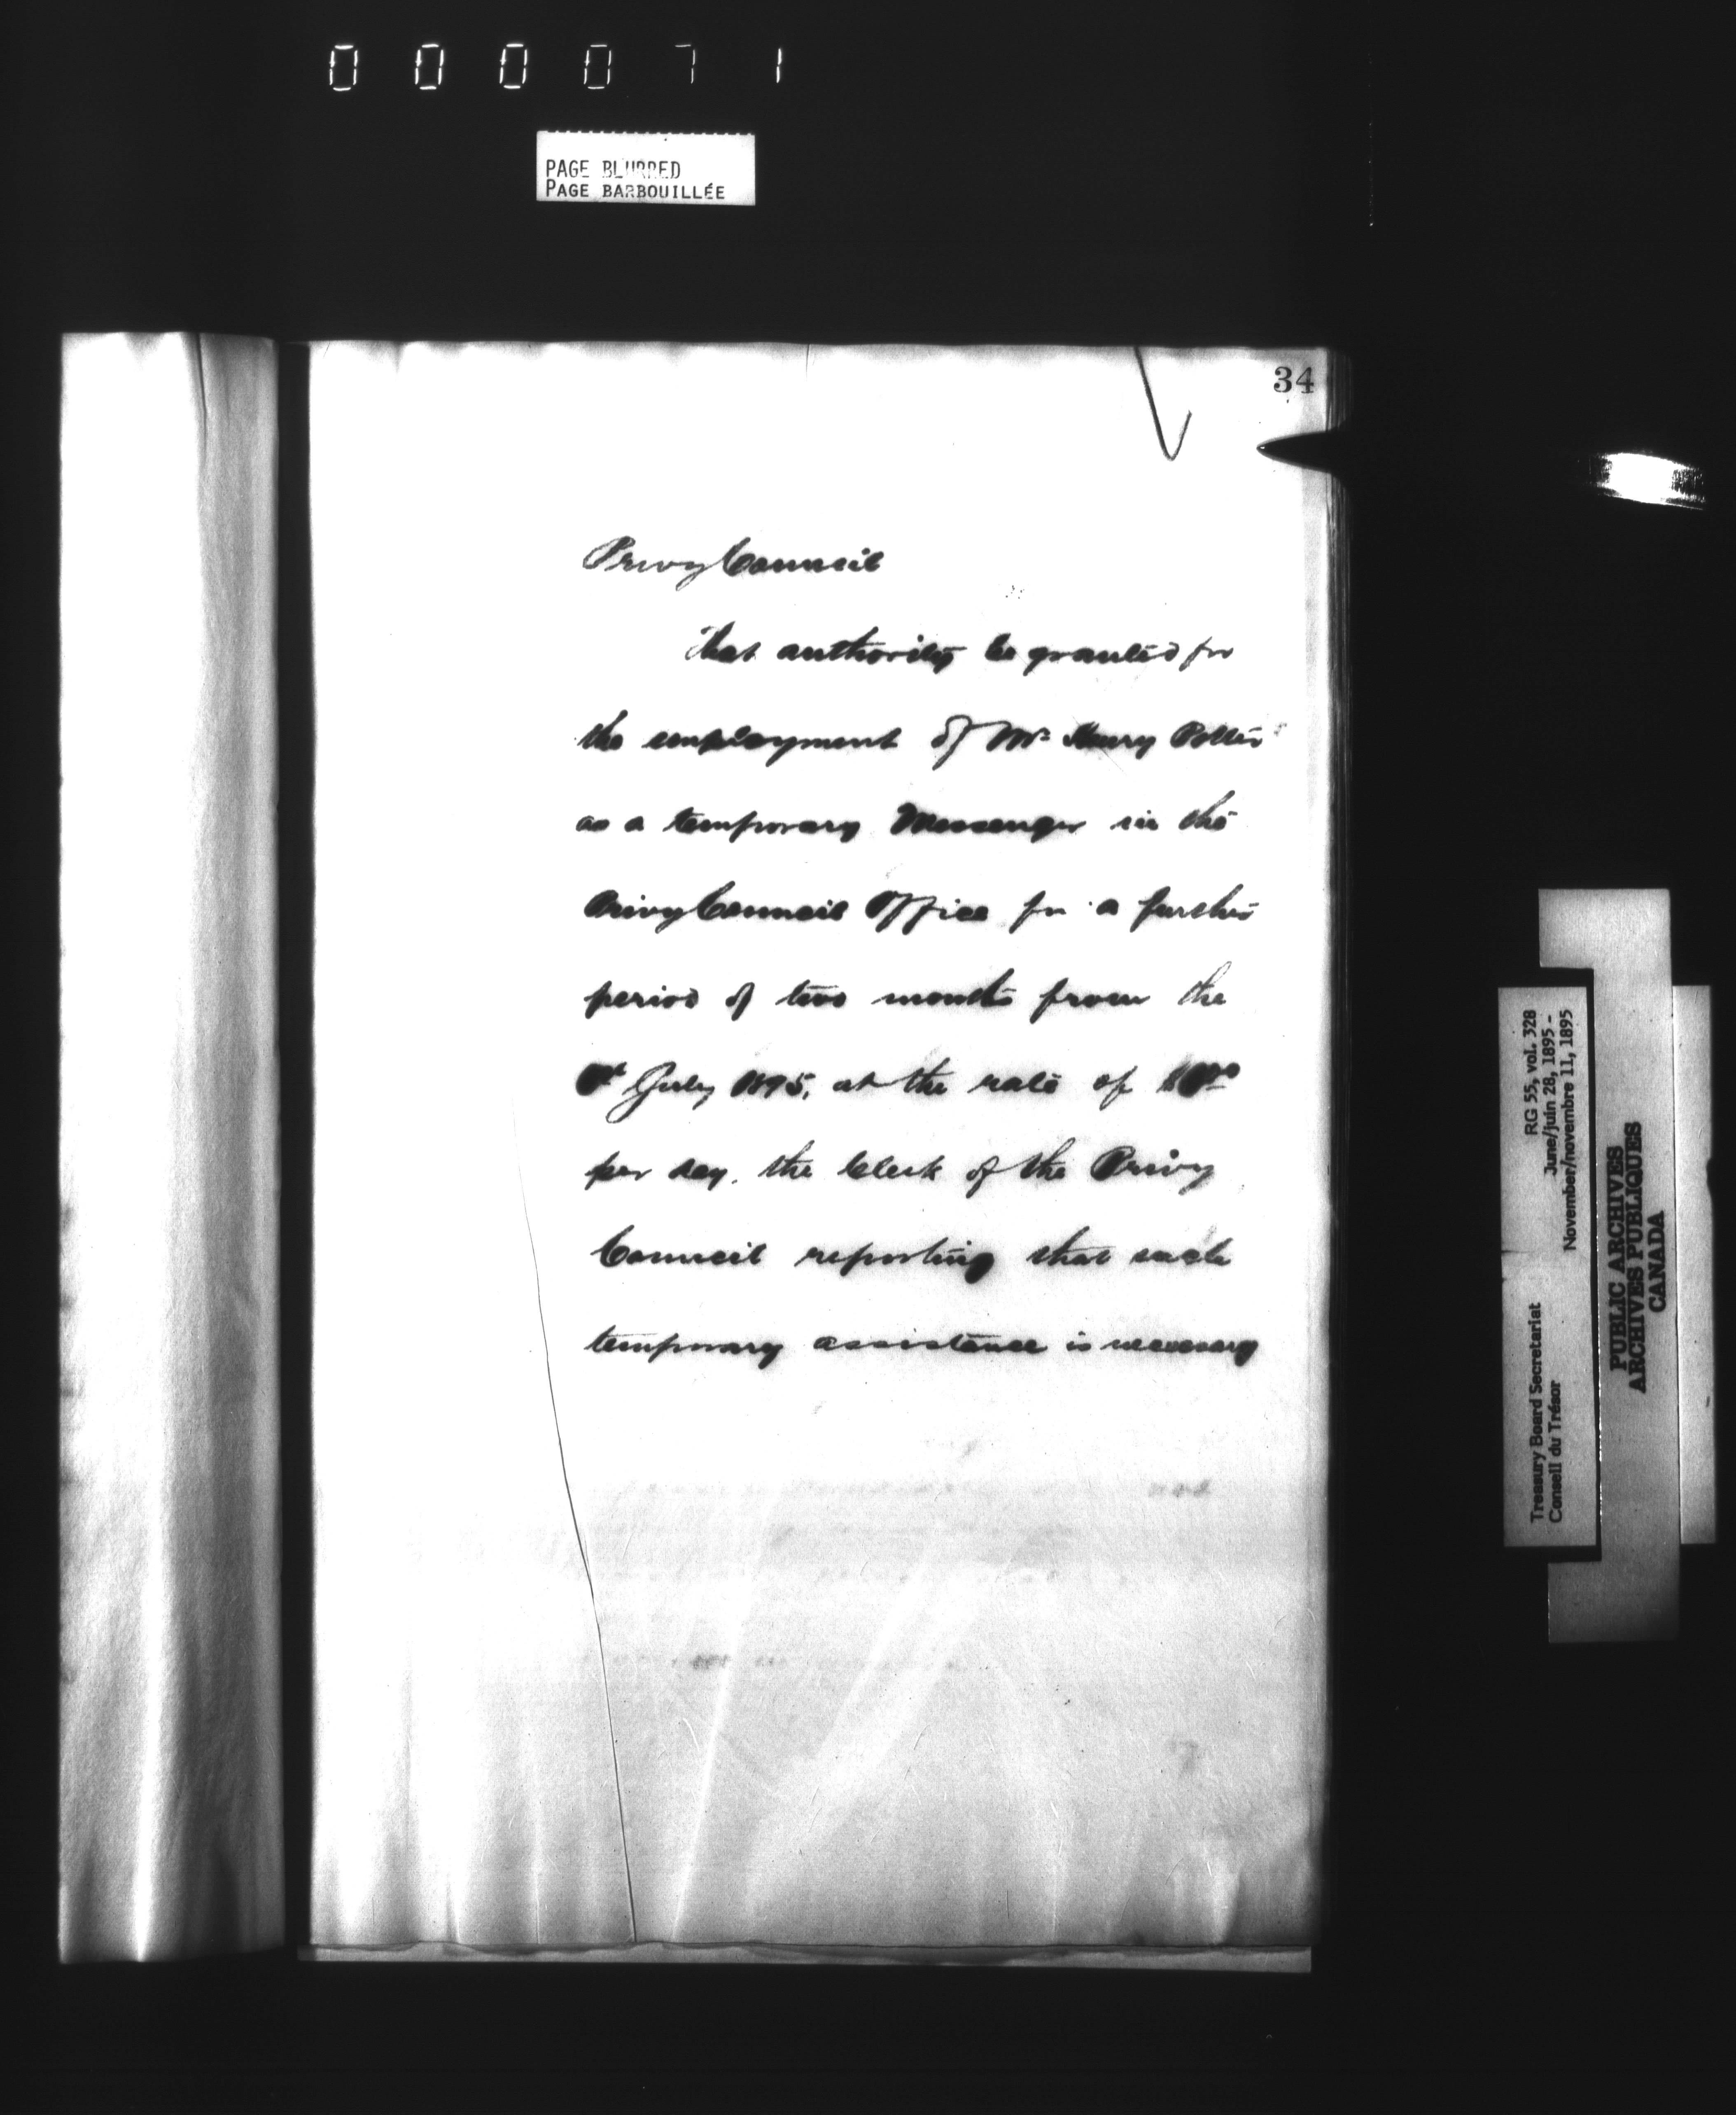 000071
PAGE BLURRED
PAGE BARBOUILLÉE
34
Privy Council
That authority be granted for
the employment of Mr Henry Potter
as a temporary Messenger in the
Privy Council Office for a further
period of two months from the
1st July 1895, at the rate of
per day, the Clerk of the Privy
Council reporting that such
temporary assistance is necessary
Treasury Board Secretariat RG 55, vol. 328
Conseil du Trésor June/juin 28, 1895 -
November/novembre 11, 1895
PUBLIC ARCHIVES
ARCHIVES PUBLIQUES
CANADA